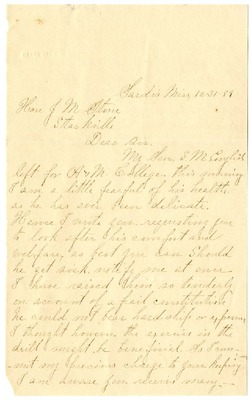 Sardis Miss 10-31-89
Hon J. M. Stone
Starkville
Dear Sir.
My Son, S. M. English
left for A & M. College, this morning
I am a little fearful of his health
as he has ever been delicate.
Hence I write you requesting you
to look after his comfort and
welfare, as best you can should
he get sick notify me at once
I have raised him so tenderly
on account of a frail constitution
he could not bear hardship or exposure,
I thought however the exercise in the
drill might be beneficial. So I com-
mit my precious charge to your keeping
I am aware you receive many